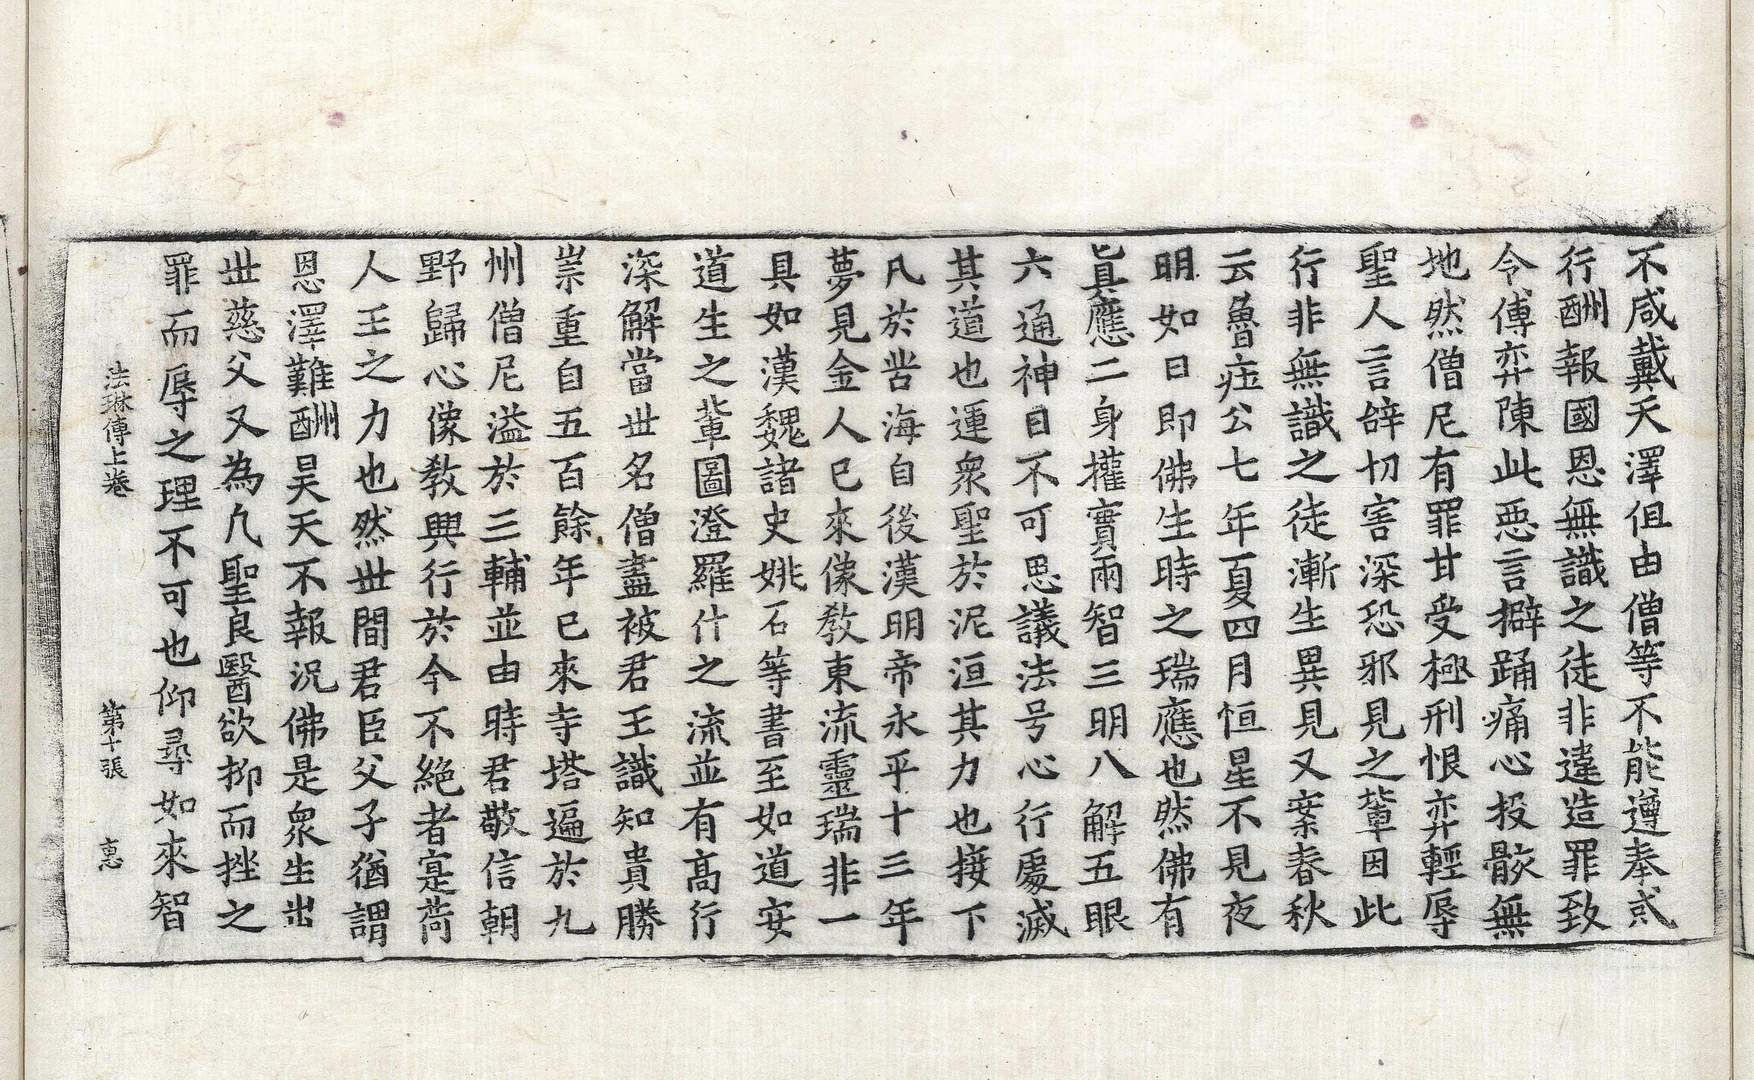 不咸戴天澤伹由僧等不能遵奉貳
行酬報國恩無識之徒非違造罪致
令傅弈陳此惡言擗踊痛心投骸無
地然僧尼有罪甘受極刑恨弈輕辱
聖人言辝切害深恐邪見之輩因此
行非無識之徒漸生異見又案春秋
云魯莊公七年夏四月恒星不見夜
明如日即佛生時之瑞應也然佛有
眞應二身權實兩智三明八解五眼
六通神曰不可思議法号心行處滅
其道也運衆聖於泥洹其力也接下
凡於苦海自後漢明帝永平十三年
夢見金人已來像教東流靈瑞非一
具如漢魏諸史姚石等書至如道安
道生之輩圖澄羅什之流並有高行
深解當世名僧盡被君王識知貴勝
崇重自五百餘年已來寺塔遍於九
州僧尼溢於三輔並由時君敬信朝
野歸心像教興行於今不絶者寔荷
人王之力也然世間君臣父子猶謂
恩澤難酬昊天不報況佛是衆生出
世慈父又為凡聖良醫欲抑而挫之
罪而辱之理不可也仰尋如來智
法琳傳上卷 第十張 惠